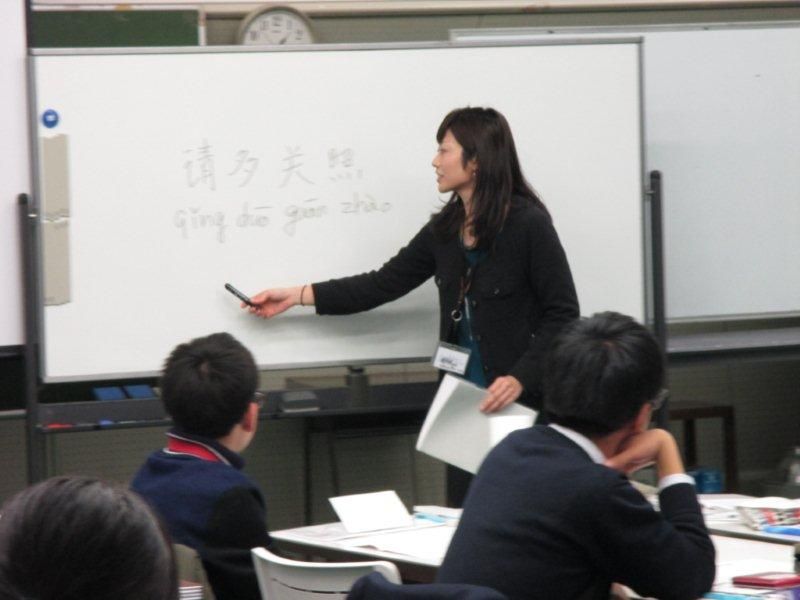 请多关照
qǐng duō guān zhào